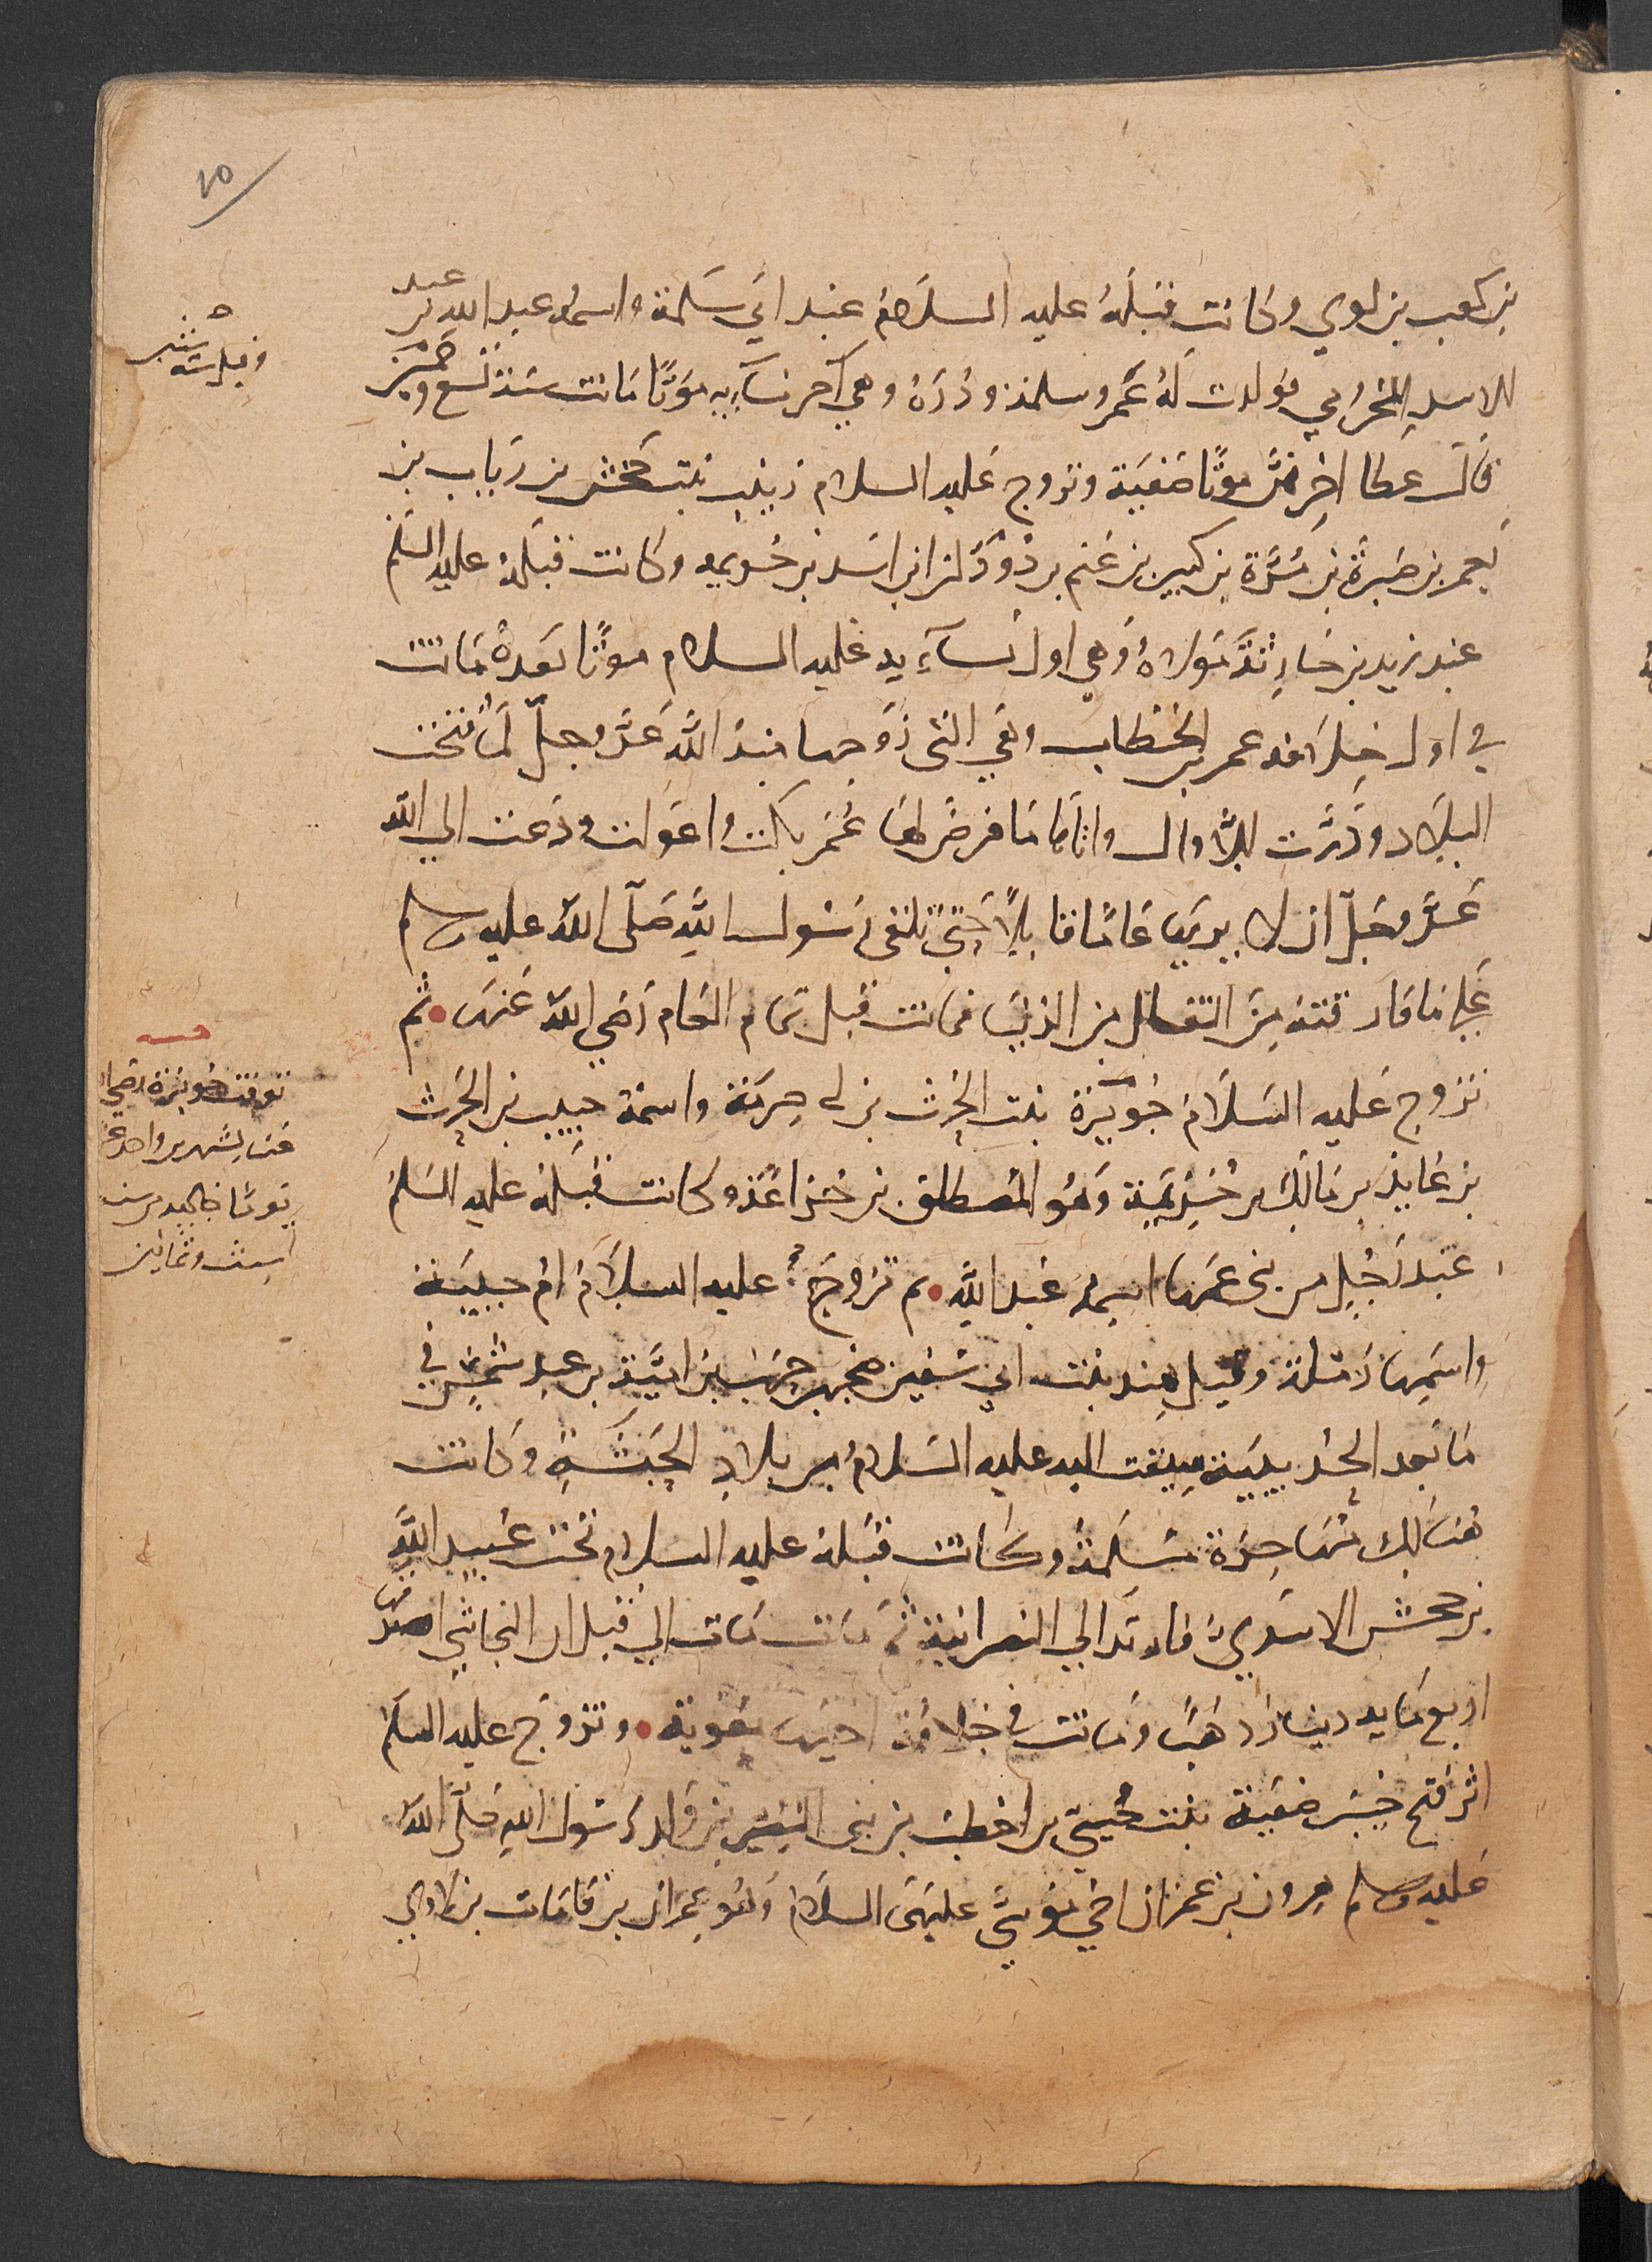 ٢٥
بن كعب بن لوي وكانت قبلهُ عليه السلام عند ابي سَلمة واسمه عبد الله بن عبد
الاسد المخزومي فولدت لهُ عُمر وسلمة ودُرة وهي آخر نسآيه مَوتًا ماتت سَنة تسع وخمسين
وقيل ستين
قال عطا اخرهن موتًا صَفيَة وتزوج عَليه السلام زينب بنت جَحش بن رياب بن
يَعمر بن صَبرة بن مُرَّة بن كبير بن غنم بن دُودان ابن اسَد بن خُزيمه وكانت قبلهُ عليه السَّلم
عند زيد بن حَارِثَة مَولاهُ وَهي اول نسآءِيه عَليه السلام موتًا بعدهُ مَاتت
في اول خِلافه عمر بن الخطاب وَهي التي زوَّجها منهُ الله عَزَّ وجلّ لما فُتحت
البلاد ودَرَّت الاموال واتاها مَا فرضَ لها عُمَر بكت واعولت ودَعت الي الله
عَزَّ وجَلّ ان لا يريها عَامًا قابلًا حَتي تلقى رَسُول اللهِ صَلّى اللهُ عليه وسلم
عَلى مَا فارقتهُ مِنَ التقلل من الدنيَا فماتت قبل تمام العَام رَضي اللهُ عَنهَا ثم
تزوج عَليه السَّلامُ جُويَرية بنت الحرث بن ابي ضِرار واسمهُ حبيب بن الحرث
توفت جويرية رضي الله
عنها بشهر ربيع
سنة ست
وخمسين
بن عَايذ بن مَالك بن جُذيمَة وَهُو المُصطلق بن خُزاعَة وكانت قبلهُ عليه السَّلم
عند رَجُلٍ من بني عَمها اسمهُ عَبد اللهِ ثم تزوجَ عليه السلامُ ام حبيبَة
واسَمها رَملة وقيل هِند بنت ابي سُفين صَخر بن حَرب بن امَيَّة بن عَبد شَمْس في
مَا بَعد الحُديبيَة سِيقت اليه عليه السَّلامُ من بلادِ الحَبشَة وَكانت
هُنالك مُهَاجِرَة مُسلمة وكانت قبلهُ عليه السَلام تحت عُبيد اللهِ
بن جحش الاسَدي فارتدَّ الي النصرانية ثم مَات هناك الي قبل ان النجاشي اصدقها
اربع مَايه دينار ذَهبًا ومَاتت في خلافة اخيهَا معُوية وتزوجَ عليه السلام
اثر فتح خيبَر صَفيَة بنت حُييّ بن اخطب من بني النضير من ولد رَسُول اللهِ صَلَّى اللهُ
عَليه وسلم هرون بن عمران اخي موسَى عليهمَا السلام وَهُو عمران بن قاهَات بن لاوي